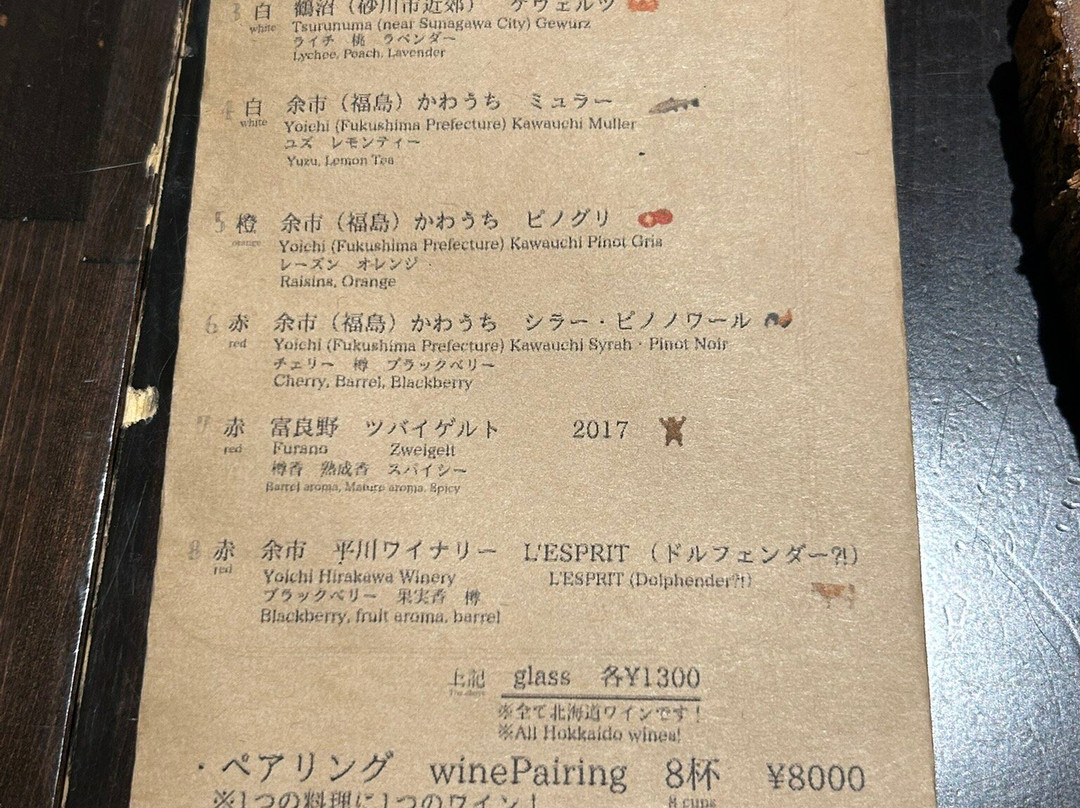 3 白 鶴沼（砂川市近郊） ゲヴェルツ
white Tsurunuma (near Sunagawa City) Gewurz
ライチ 桃 ラベンダー
Lychee, Peach, Lavender
4 白 余市（福島）かわうち ミュラー
white Yoichi (Fukushima Prefecture) Kawauchi Muller
ユズ レモンティー
Yuzu, Lemon Tea
5 橙 余市（福島）かわうち ピノグリ
orange Yoichi (Fukushima Prefecture) Kawauchi Pinot Gris
レーズン オレンジ
Raisins, Orange
6 赤 余市（福島）かわうち シラー・ピノノワール
red Yoichi (Fukushima Prefecture) Kawauchi Syrah・Pinot Noir
チェリー 樽 ブラックベリー
Cherry, Barrel, Blackberry
7 赤 富良野 ツバイゲルト 2017
red Furano Zweigelt
樽香 熟成香 スパイシー
Barrel aroma, Mature aroma, Spicy
8 赤 余市 平川ワイナリー L'ESPRIT （ドルフェンダー?!）
red Yoichi Hirakawa Winery L'ESPRIT (Dolphender?!)
ブラックベリー 果実香 樽
Blackberry, fruit aroma, barrel
上記 glass 各¥1300
The above
※全て北海道ワインです！
※All Hokkaido wines!
・ペアリング winePairing 8杯 ¥8000
※1つの料理に1つのワイン！ 8 cups